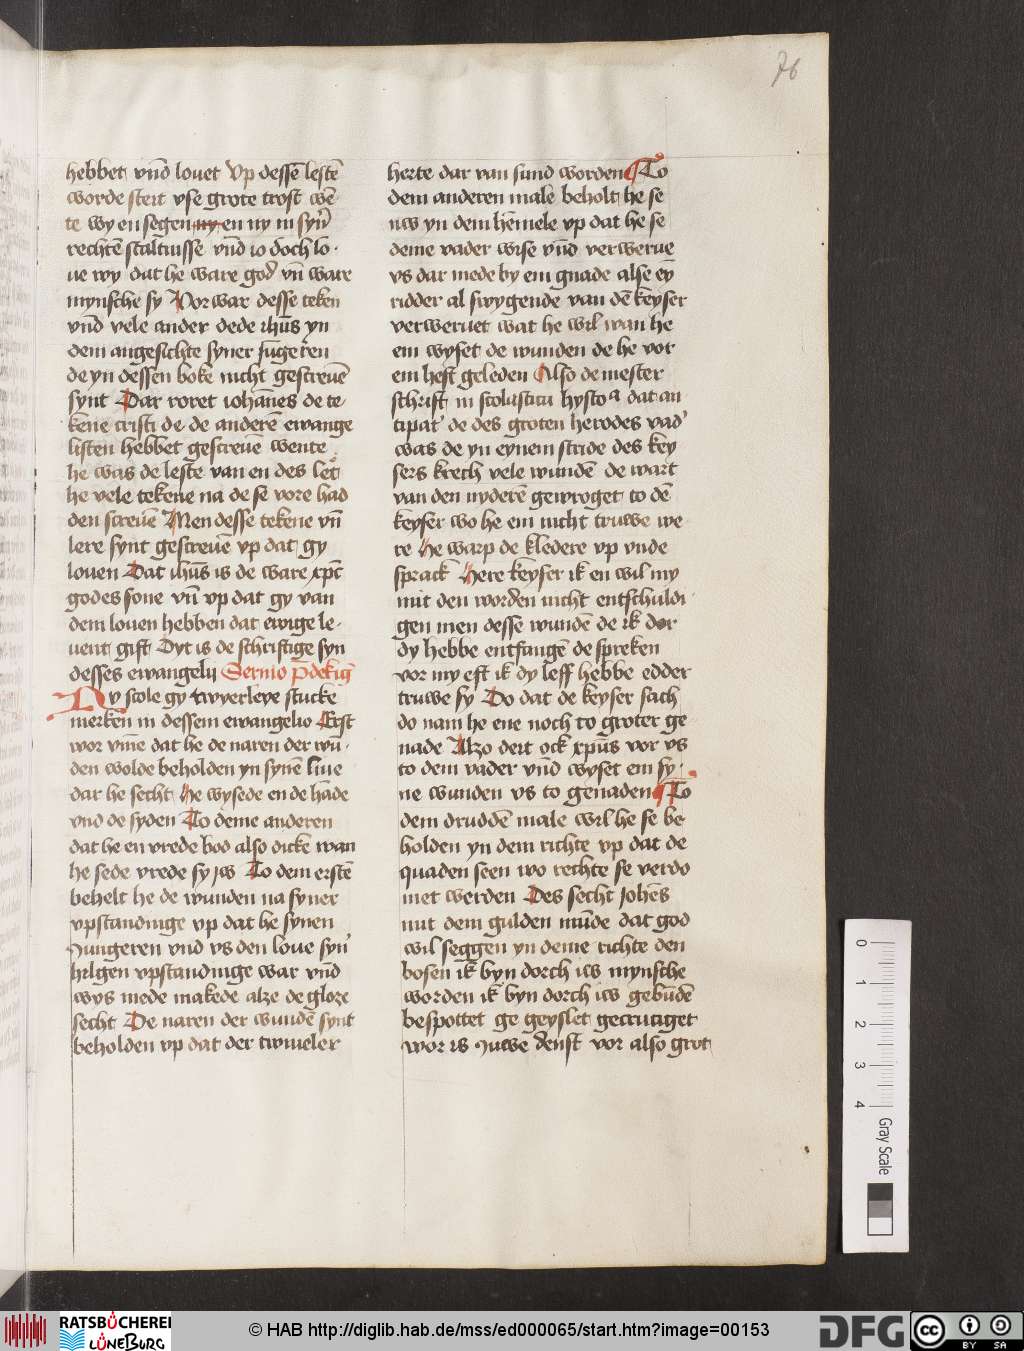 76
hebbet vn̄d louet Vp dessē lestē
worde steit vse grote trost wē
te wy en segen ny en ny in syn̄
rechtē staltnisse vn̄d io doch lo
ue wy dat he ware god vn̄ ware
mynsche sy Vorwar desse teken
vn̄d vele ander dede ihūs yn
dem angesichte syner iūgeren
de yn dessen boke nicht gescreuē
synt Dar roret iohānes de te
kene cristi de de anderē ewange
listen hebbet gescreuē wente
he was de leste van en des let
he vele tekene na de se vore had
den screuē Men desse tekene vn̄
lere synt gescreuē vp dat gy
louen Dat ihūs is de ware xp̄c
godes sone vn̄ vp dat gy van
dem louen hebben dat ewige le
uent gift Dyt is de schriftige syn
desses ewangelij Sermo p̄dekīg
Nv scole gy twyerleye stucke
merken in dessem ewangelio Erst
wor vm̄e dat he de naren der wū
den wolde beholden yn synē liue
dar he secht He wysede en de hāde
vnd de syden To deme anderen
dat he en vrede bod also dicke wan
he sede vrede sy jw To dem erstē
behelt he de wunden na syner
vpstandinge vp dat he synen
Jungeren vnd vs den loue syn̄
hilgen vpstandinge war vn̄d
wys mede makede alze de gloze
secht De naren der wundē synt
beholden vp dat der twiueler
herte dar van sund worden To
dem anderen male beholt he se
nw yn dem hēmele vp dat he se
deme vader wise vn̄d verwerue
vs dar mede by em gnade alse ey̅
ridder al swygende van dē keyser
verweruet wat he wil wan he
em wyset de wunden de he vor
em heft geleden Also de mester
schrift in scolastica hystoa dat an
tipat' de des groten herodes vad'
was de yn eynem stride des key
sers krech vele wundē de wart
van den nyderē gewroget to dē
keyser wo he em nicht truwe we
re He warp de kledere vp vnde
sprack Here keyser ik en wil my
mit den worden nicht entschuldi
gen men desse wundē de ik dor
dy hebbe entfangē de spreken
vor my eft ik dy leff hebbe edder
truwe sy Do dat de keyser sach
do nam he ene noch to groter ge
nade Alzo deit ock xp̄us vor vs
to dem vader vn̄d wyset em sy
ne wunden vs to genaden To
dem druddē male wil he se be
holden yn dem richte vp dat de
quaden seen wo rechte se verdo
met werden Des secht Johēs
mit dem gulden mūde dat god
wil seggen yn deme richte den
bosen ik byn dorch iw mynsche
worden ik byn dorch iw gebūdē
bespottet ge geyslet gecruciget
wor is Juwe denst vor also grot
0 1 2 3 4 Gray Scale
RATSBÜCHEREI
LÜNEBURG
© HAB http://diglib.hab.de/mss/ed000065/start.htm?image=00153
DFG
cc BY SA